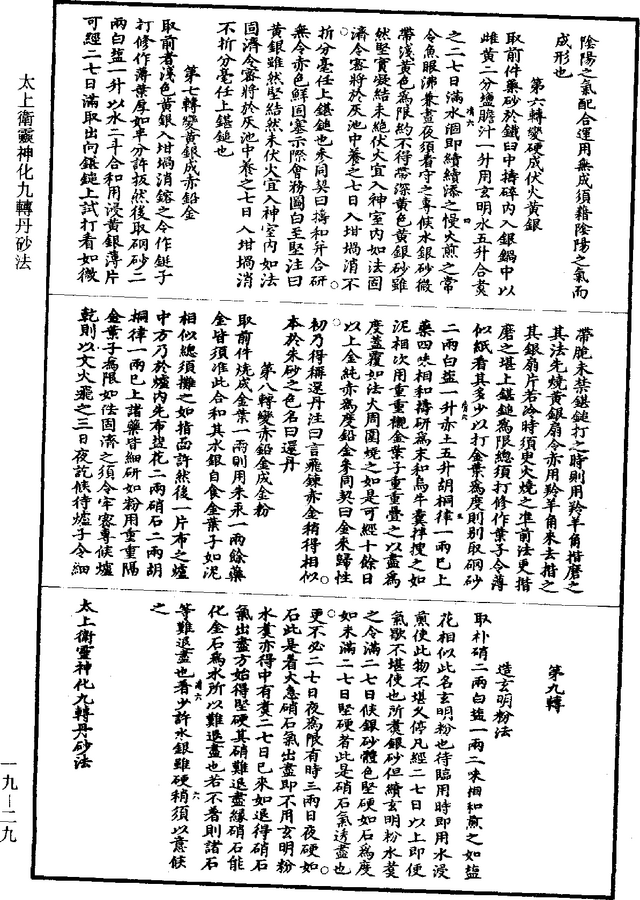 太上衛靈神化九轉丹砂法
陰陽之氣配合運用無成須藉陰陽之氣而
成形也
第六轉變硬成伏火黃銀
取前件藥砂於鐵臼中擣碎內入銀鍋中以
雌黃二分鹽膽汁一升用玄明水五升合煑
之二七日滿水涸即續續添之慢火煎之常
令魚眼沸兼晝夜須看守之專候水銀砂微
帶淺黃色為限約不得帶深黃色黃銀砂雖
然堅實凝結未絶伏火宜入神室內如法固
濟令密將於灰池中養之七日入坩堝消不
折分毫任上鍖鎚也叅同契曰擣和并合研
無令赤色鮮固塞示際會務圖白至堅注曰
黃銀雖然堅結然未伏火宜入神室內如法
固濟令密將於灰池中養之七日入坩堝消
不折分毫任上鍖鎚也
第七轉變黃銀成赤鉛金
取前者淺色黃銀入坩堝消鎔之令作鋌子
打修作薄葉厚如半分許抜然後取硇砂二
兩白鹽一升以水二斗合和用浸黃銀薄片
可經二七日滿取出向鍖鎚上試打看如微
帶脆未禁鍖鎚打之時則用羚羊角揩磨之
其法先燒黃銀扇令赤用羚羊角來去揩之
其銀扇片若冷時須更火燒之准前法更揩
磨之堪上鍖鎚為限總須打修作葉子令薄
似紙看其多少以打金葉為度則別取硇砂
二兩白鹽一升赤土五升胡桐律一兩已上
藥四味相和擣研為末和烏牛糞拌搜之如
泥相次用重重襯金葉子重重疊之以盡為
度蓋覆如法大周圍燒之如是可經十餘日
以上金純赤為度鉛金叅同契曰金來歸性
初乃得稱還丹注曰言飛鍊赤金稍得相似
本於朱砂之色名曰還丹
第八轉變赤鉛金成金粉
取前件燒成金葉一兩則用朱汞一兩餘藥
金皆須准此合和其水銀自食金葉子如泥
相似總須攤之如指面許然後一片布之爐
中方乃於爐內先布堿花二兩硝石二兩胡
桐律一兩已上諸藥皆細研如粉用重重隔
金葉子為限如法固濟之須令牢密專候爐
乾則以文火飛之三日夜訖候待爐子令細
第九轉
造玄明粉法
取朴硝二兩白鹽一兩二來相和煎之如鹽
花相似此名玄明粉也待臨用時即用水浸
煎使此物不堪久停凡經二七日以上即便
氣歇不堪使也所煑銀砂但續玄明粉水煑
之令滿二七日候銀砂體色堅硬如石為度
如未滿二七日堅硬者此是硝石氣透盡也
更不必二七日夜為限有時三兩日夜硬如
石此是看火急硝石氣出盡即不用玄明粉
水煑亦得中有煑二七日已來如退得硝石
氣出盡方始得堅硬其硝難退盡緣硝石能
化金石為水所以難退盡也若不着則諸石
等難退盡也看少許水銀雖硬稍須以意候
之
太上衛靈神化九轉丹砂法
一九—二九